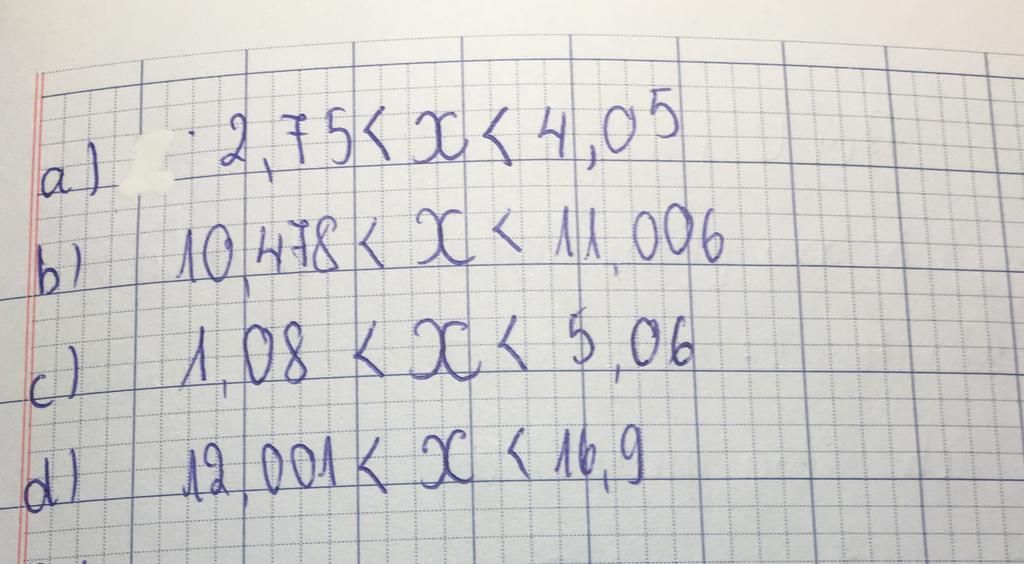 a) 2,75 < x < 4,05
b) 10,478 < x < 11,006
c) 1,08 < x < 5,06
d) 12,001 < x < 16,9